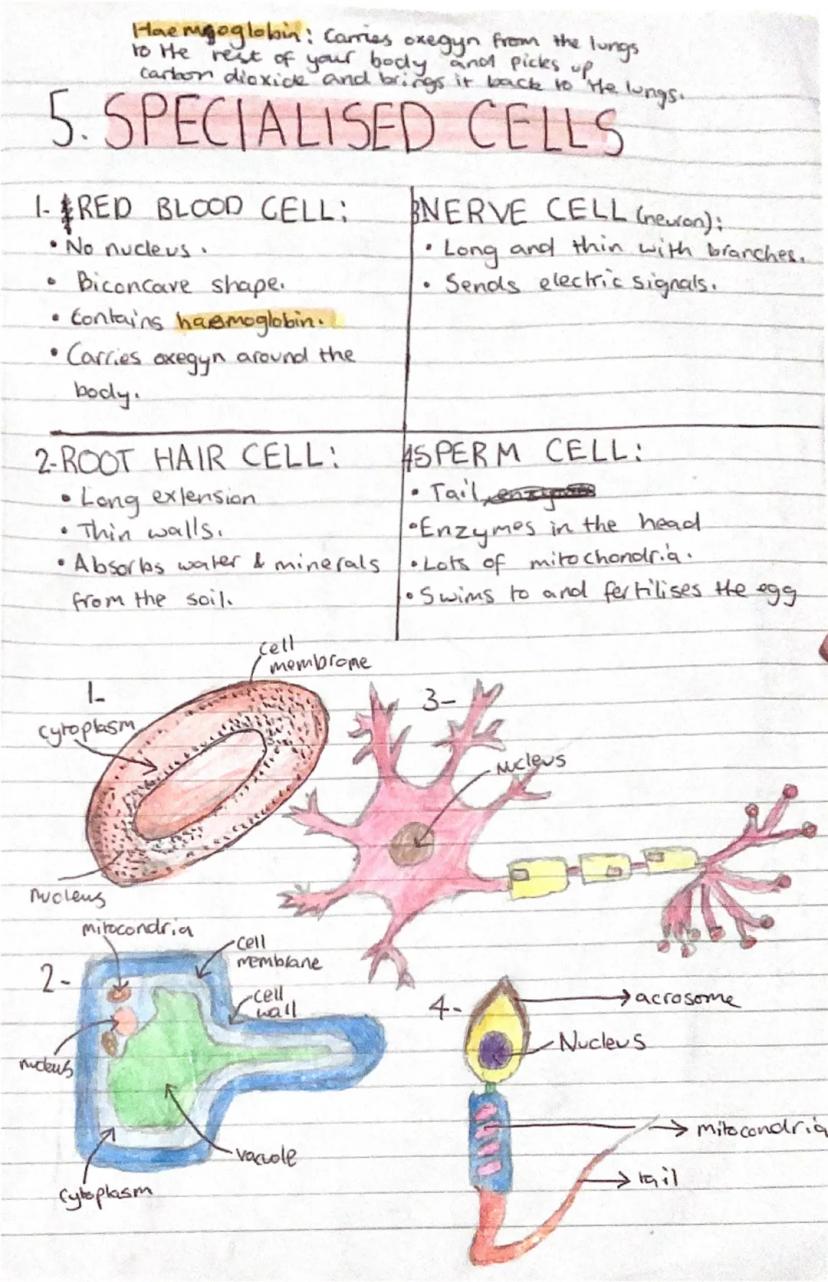 Haemgoglobin: Carries oxegyn from the lungs
to the rest of your body and picks up
carbon dioxide and brings it back to the lungs.
5. SPECIALISED CELLS
1- RED BLOOD CELL:
• No nucleus.
• Biconcave shape.
• Contains haemoglobin.
• Carries oxegyn around the
body.
3NERVE CELL (neuron):
• Long and thin with branches.
• Sends electric signals.
2-ROOT HAIR CELL:
• Long extension
• Thin walls.
• Absorbs water & minerals
from the soil.
4SPERM CELL:
• Tail
• Enzymes in the head
• Lots of mitochondria.
• Swims to and fertilises the egg
1-
cell
membrome
cytoplasm
nucleus
3-
nucleus
2-
mitocondria
cell
membrane
cell
wall
nucleus
vacuole
cytoplasm
4-
acrosome
Nucleus
mitocondria
tail